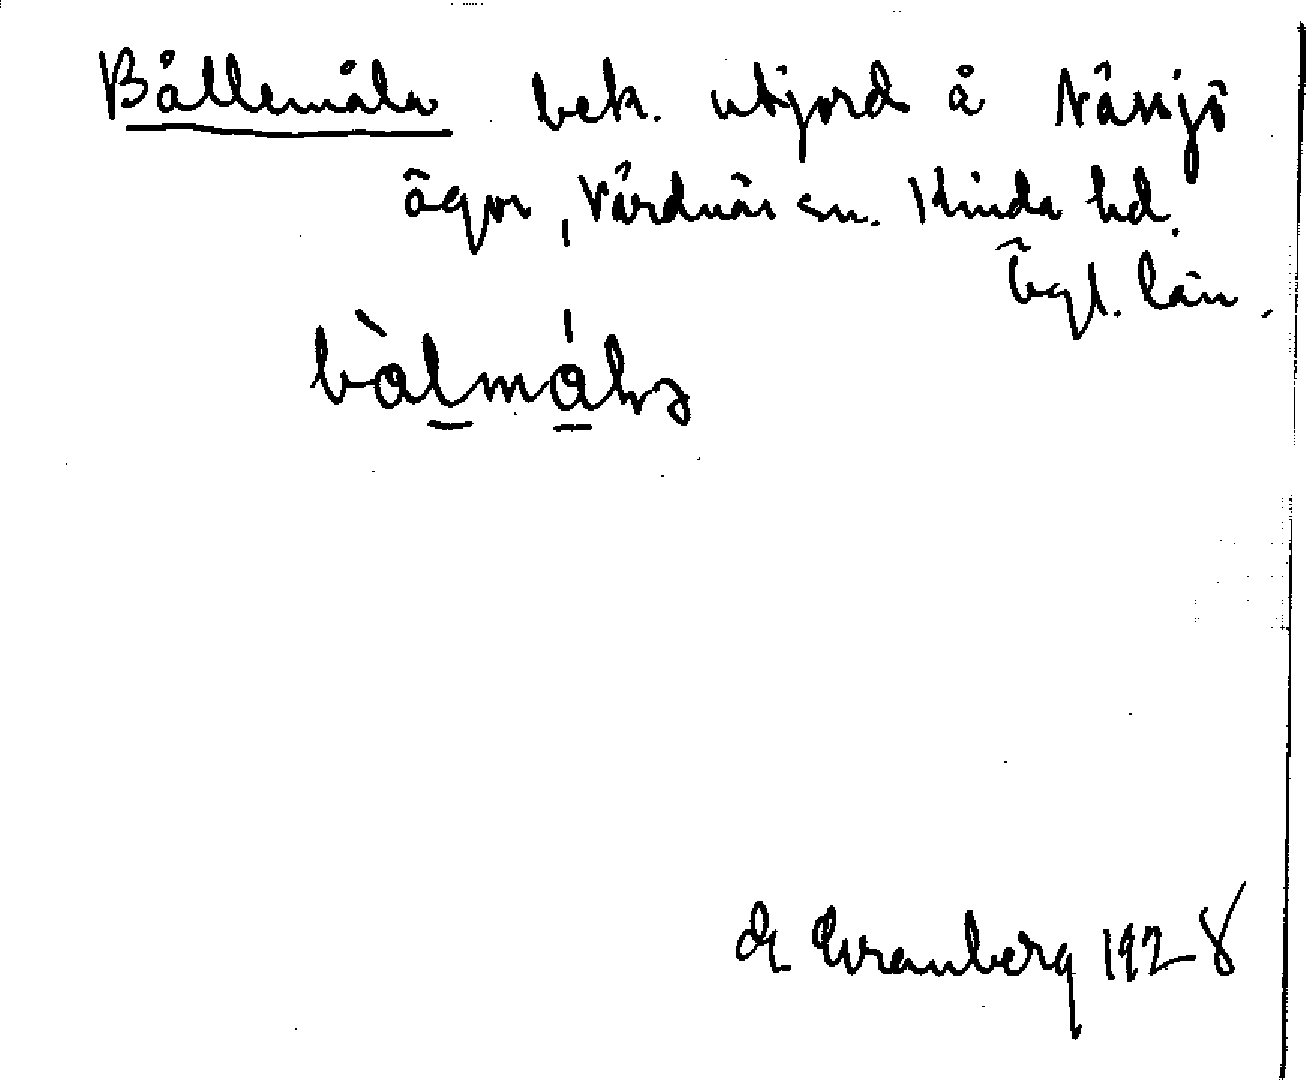 Bållemåla bek. utjord å Nässjö
ägor, Vårdnäs sn. Kinda hd.
Ögl. län.
bàlmála
A Granberg 1928